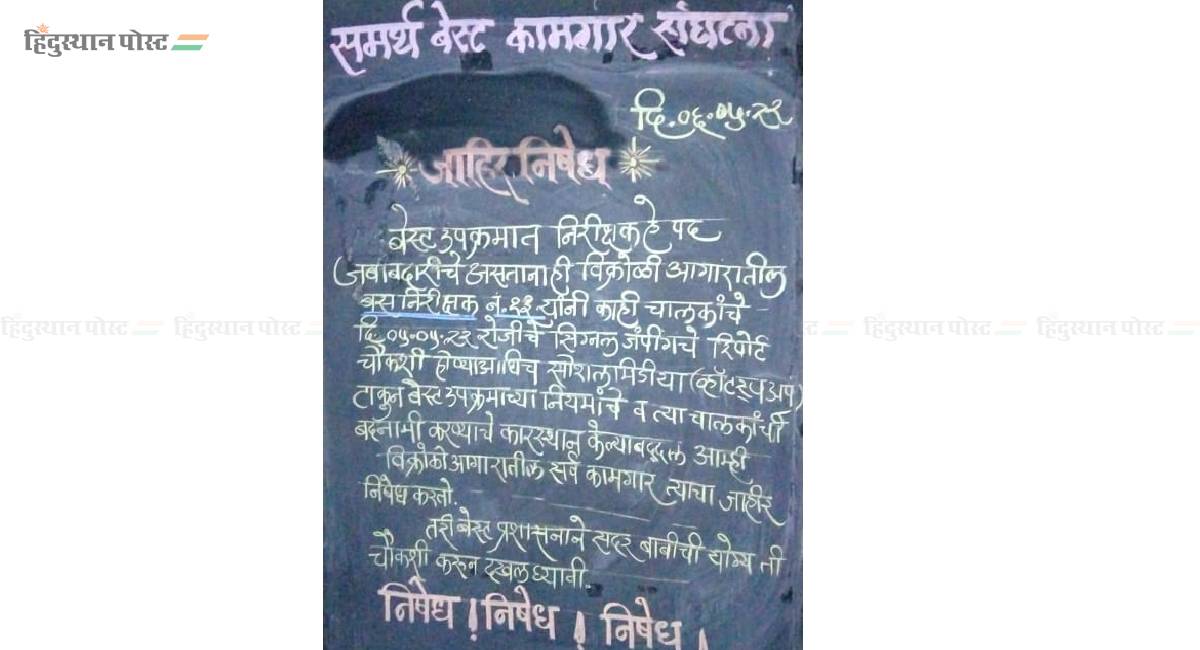 हिंदुस्थान पोस्ट
समर्थ बेस्ट कामगार संघटना
दि.०६.०५.२३
जाहिर निषेध
बेस्ट उपक्रमात निरीक्षक हे पद
जबाबदारीचे असतानाही विक्रोळी आगारातील
बस निरीक्षक नं. १३ यांनी काही चालकांचे
दि.०५.०५.२३ रोजीचे सिग्नल जंपींगचे रिपोर्ट
चौकशी होण्याआधिच सोशल मिडीया (व्हॉट्स्अप)
टाकुन बेस्ट उपक्रमाच्या नियमांचे व त्या चालकांची
बदनामी करण्याचे कारस्थान केल्याबद्दल आम्ही
विक्रोळी आगारातील सर्व कामगार त्याचा जाहीर
निषेध करतो.
तरी बेस्ट प्रशासनाने सदर बाबीची योग्य ती
चौकशी करून दखल घ्यावी.
निषेध ! निषेध ! निषेध !
हिंदुस्थान पोस्ट हिंदुस्थान पोस्ट हिंदुस्थान पोस्ट हिंदुस्थान पोस्ट